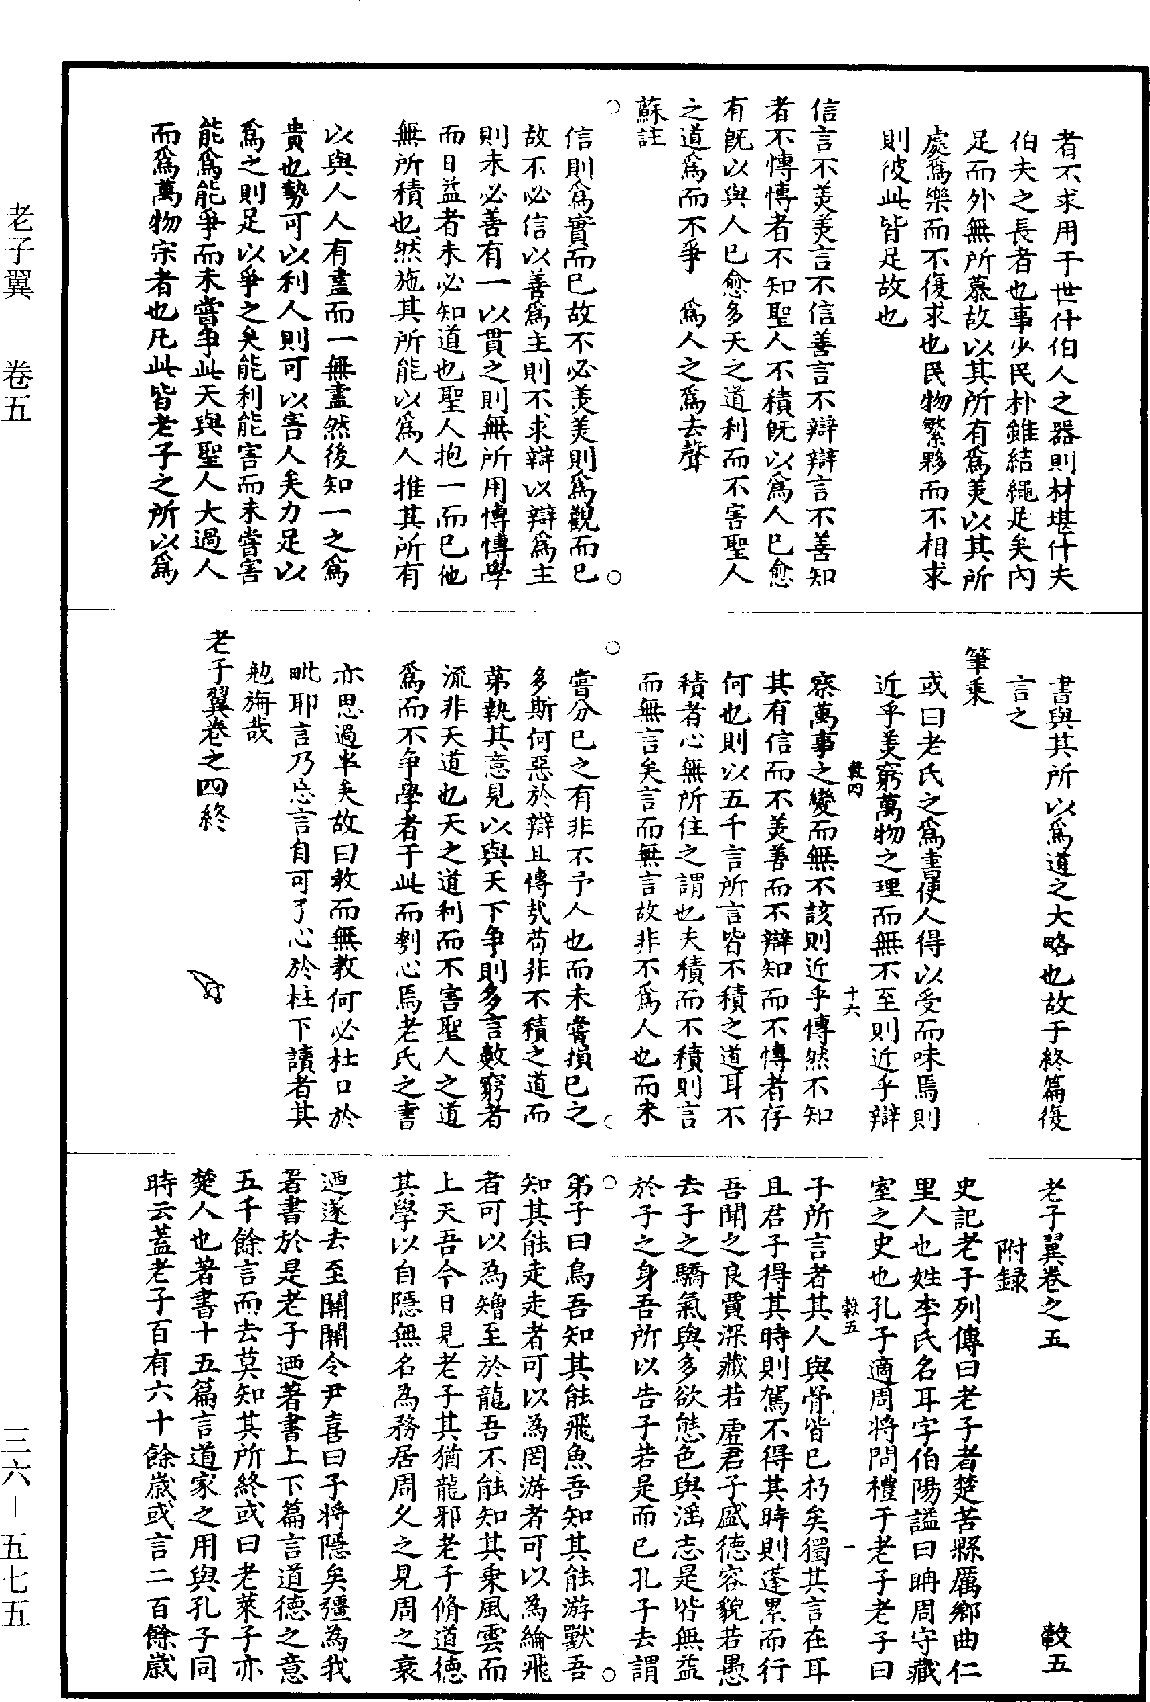 者不求用于世什伯人之器則材堪什夫
伯夫之長者也事少民朴雖結繩足矣內
足而外無所慕故以其所有爲美以其所
處爲樂而不復求也民物繁夥而不相求
則彼此皆足故也
信言不美美言不信善言不辯辯言不善知
者不博博者不知聖人不積旣以爲人已愈
有旣以與人已愈多天之道利而不害聖人
之道爲而不爭 爲人之爲去聲
蘇註
信則爲實而已故不必美美則爲觀而已
故不必信以善爲主則不求辯以辯爲主
則未必善有一以貫之則無所用博博學
而日益者未必知道也聖人抱一而已他
無所積也然施其所能以爲人推其所有
以與人人有盡而一無盡然後知一之爲
貴也勢可以利人則可以害人矣力足以
爲之則足以爭之矣能利能害而未嘗害
能爲能爭而未嘗爭此天與聖人大過人
而爲萬物宗者也凡此皆老子之所以爲
書與其所以爲道之大略也故于終篇復
言之
筆乘
或曰老氏之爲書使人得以受而味焉則
近乎美窮萬物之理而無不至則近乎辯
穀四
十六
察萬事之變而無不該則近乎博然不知
其有信而不美善而不辯知而不博者存
何也則以五千言所言皆不積之道耳不
積者心無所住之謂也夫積而不積則言
而無言矣言而無言故非不爲人也而未
嘗分已之有非不予人也而未嘗損已之
多斯何惡於辯且博哉苟非不積之道而
苐執其意見以與天下爭則多言數窮者
流非天道也天之道利而不害聖人之道
爲而不爭學者于此而刳心焉老氏之書
亦思過半矣故曰教而無教何必杜口於
毗耶言乃忘言自可了心於柱下讀者其
勉旃哉
老子翼卷之四終
老子翼卷之五
穀五
附錄
史記老子列傳曰老子者楚苦縣厲鄉曲仁
里人也姓李氏名耳字伯陽謚曰聃周守藏
室之史也孔子適周將問禮于老子老子曰
穀五
一
子所言者其人與骨皆已朽矣獨其言在耳
且君子得其時則駕不得其時則蓬累而行
吾聞之良賈深藏若虛君子盛德容貌若愚
去子之驕氣與多欲態色與滛志是皆無益
於子之身吾所以告子若是而已孔子去謂
弟子曰鳥吾知其能飛魚吾知其能游獸吾
知其能走走者可以為罔游者可以為綸飛
者可以為矰至於龍吾不能知其乘風雲而
上天吾今日見老子其猶龍邪老子脩道德
其學以自隱無名為務居周久之見周之衰
迺遂去至關關令尹喜曰子將隱矣彊為我
著書於是老子迺著書上下篇言道德之意
五千餘言而去莫知其所終或曰老萊子亦
楚人也著書十五篇言道家之用與孔子同
時云蓋老子百有六十餘歲或言二百餘歲
老子翼 卷五
三六－五七五